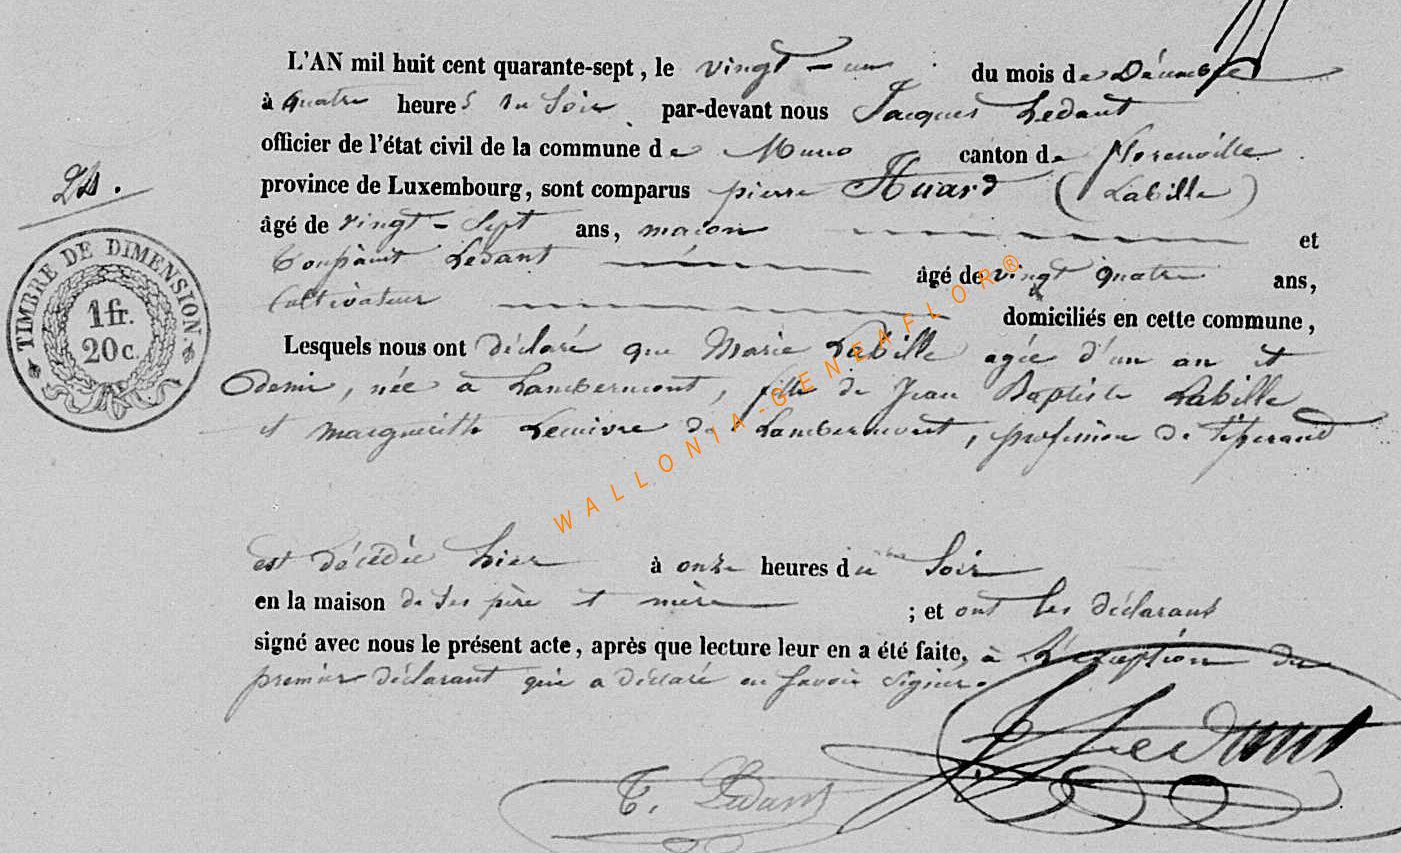 L'AN mil huit cent quarante-sept, le vingt-un du mois de Décembre
à quatre heures du Soir par-devant nous Jacques Ledant
officier de l'état civil de la commune de Muno canton de Florenville
province de Luxembourg, sont comparus pierre Huard (Labille)
28.
âgé de vingt-sept ans, maçon et
Toussaint Ledant âgé de vingt quatre ans,
Cultivateur domiciliés en cette commune,
Lesquels nous ont déclaré que Marie Labille agée d'un an et
demi, née à Lambermont, fille de Jean Baptiste Labille
et margueritte de Lambermont, profession de tisserand
est décédée hier à onze heures du Soir
en la maison de ses père et mère ; et ont les déclarants
signé avec nous le présent acte, après que lecture leur en a été faite, à L'exception du
premier déclarant qui a déclaré ne savoir signer.
T. Ledant
J Ledant
TIMBRE DE DIMENSION
1 fr.
20 c.
WALLONIA-GENEAFLOR®